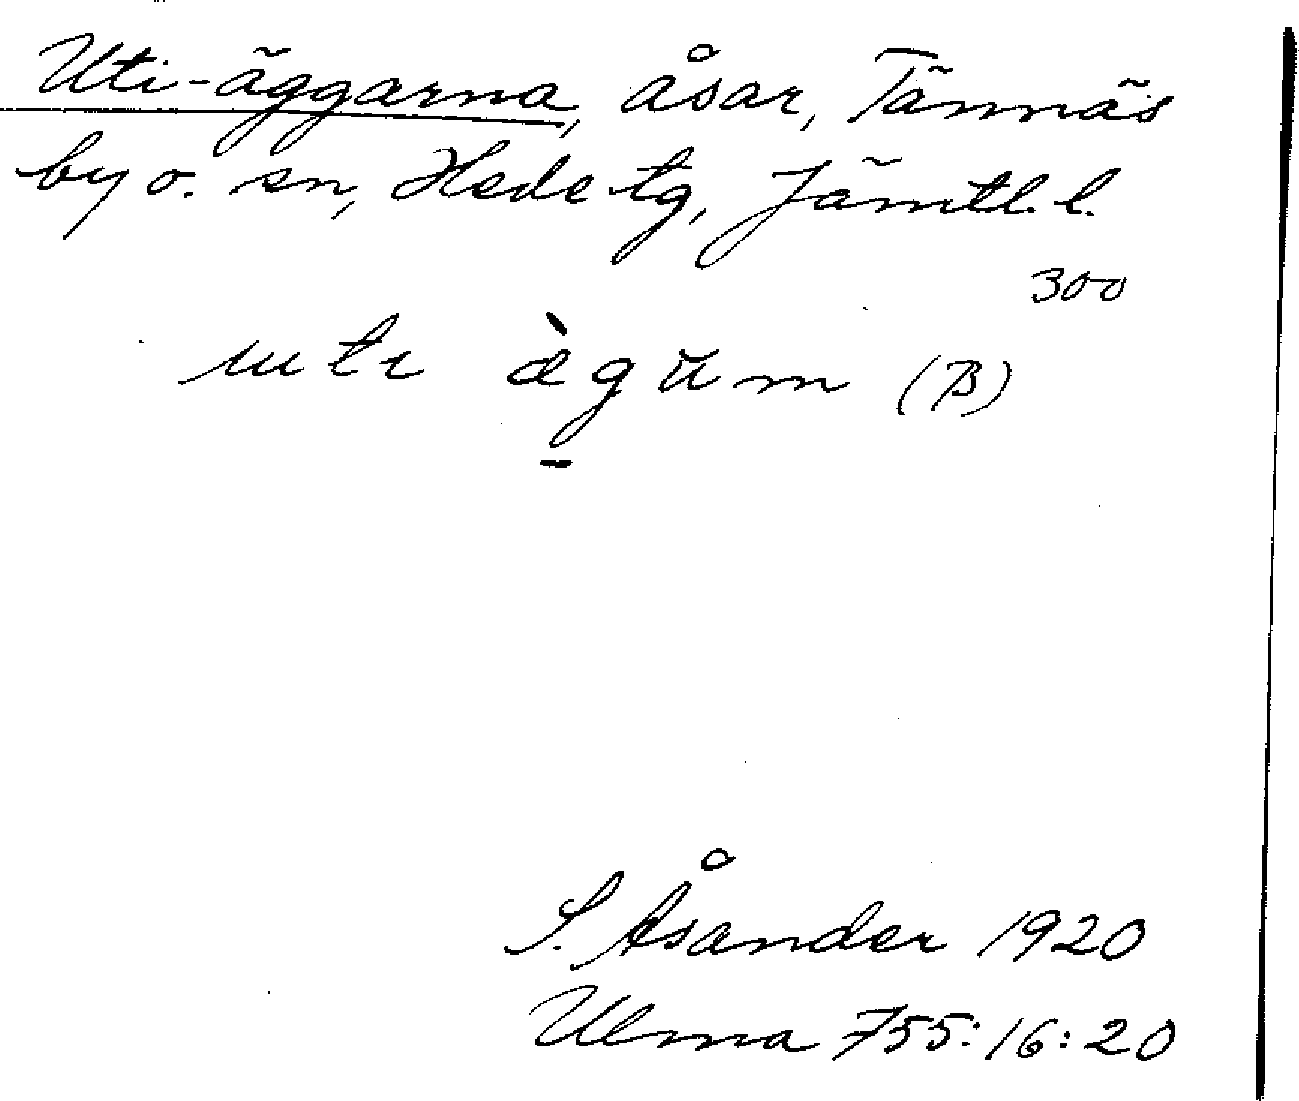 Uti-äggarna, åsar, Tännäs
by o. sn, Hede tg, Jämtl. l.
300
uti æ̀gŭm (B)
S. Åsander 1920
Ulma 755:16:20